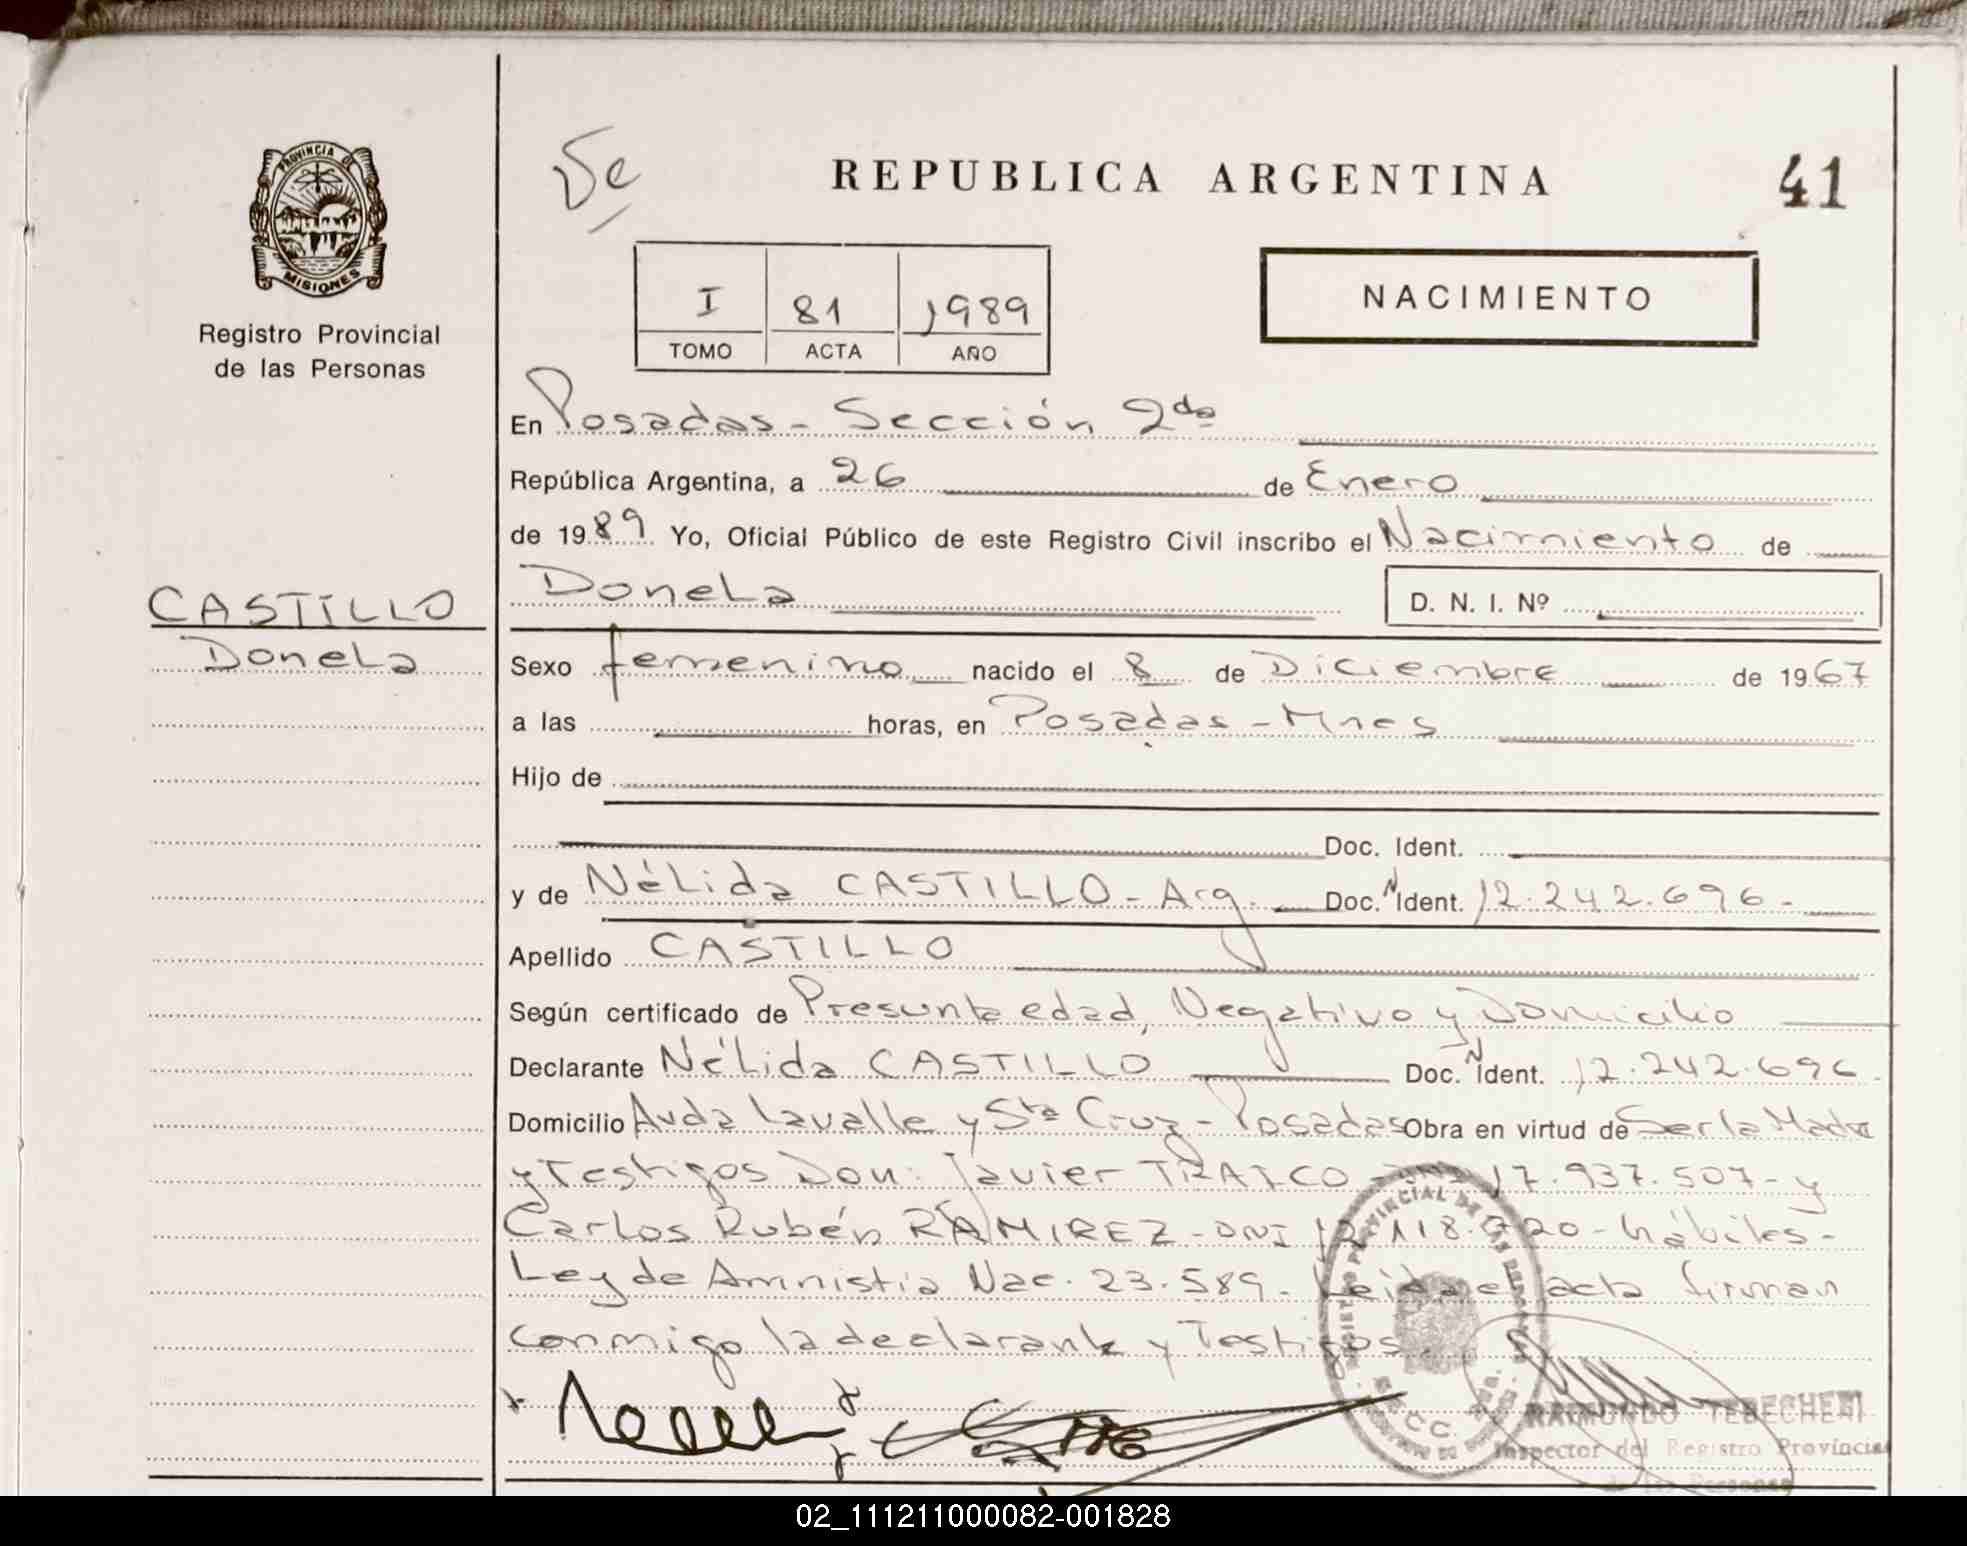 PROVINCIA DE
MISIONES
Registro Provincial
de las Personas
REPUBLICA ARGENTINA
41
I 81 1989
TOMO ACTA AÑO
NACIMIENTO
En Posadas - Sección 2da
República Argentina, a 26 de Enero
de 1989 Yo, Oficial Público de este Registro Civil inscribo el Nacimiento de
Donela D. N. I. Nº
CASTILLO
Donela
Sexo femenino nacido el 8 de Diciembre de 1967
a las horas, en Posadas - Mnes
Hijo de
Doc. Ident.
y de Nélida CASTILLO - Arg. Doc. N Ident. 12.242.696 -
Apellido CASTILLO
Según certificado de Presunta edad, Negativo y Domicilio
Declarante Nélida CASTILLO Doc. N Ident. 12.242.696 -
Domicilio Avda Lavalle y Sta Cruz - Posadas Obra en virtud de Ser la Madre
y Testigos Don: Javier - DNI 17.937.507 - y
Carlos Rubén RAMIREZ - DNI - hábiles -
Ley de Amnistia Nac. 23.589 - Leida el acta firman
conmigo la declarante y Testigos.
RAIMUNDO
Inspector del Registro Provincial
de las Personas
02_111211000082-001828